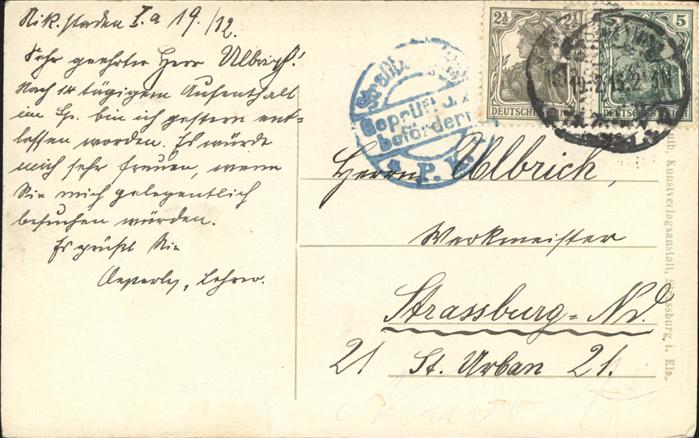 Nik. staden I. a 19./12.
Sehr geehrter Herr Ulbrich!
Nach 14 tägigem Aufenthalt
im Gp. bin ich gestern ent-
lassen worden. Es würde
mich sehr freuen, wenn
Sie mich gelegentlich
besuchen würden.
Es grüßt Sie
Lehrer.
Geprüft u. z.
befördern
P. K.
2½ 2½
DEUTSCHES
5
DEUTSCHES REICH
Herrn Ulbrich
Werkmeister
Strassburg-Nd.
21 St. Urban 21.
Kunstverlagsanstalt, Strassburg i. Els.